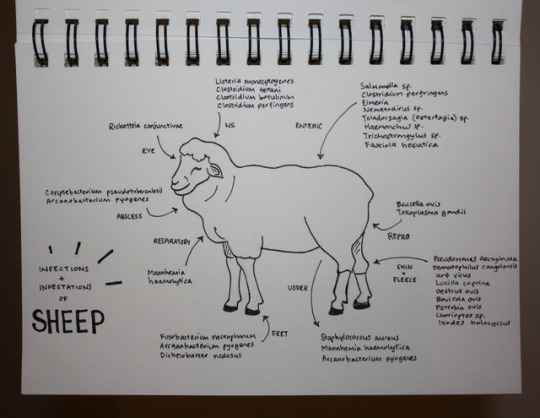 Listeria monocytogenes
Clostridium tetani
Clostridium botulinum
Clostridium perfingens
NS
Salmonella sp.
Clostridium perfringens
Eimeria
Nematodirus sp.
Teladorsagia (ostertagia) sp.
Haemonchus sp.
Trichostrongylus sp.
Fasciola hepatica
ENTERIC
Rickettsia conjunctivae
EYE
Corynebacterium pseudotuberculosis
Arcanobacterium pyogenes
ABSCESS
Brucella ovis
Toxoplasma gondii
REPRO
RESPIRATORY
Mannhemia
haemolytica
INFECTIONS
+
INFESTATIONS
OF
SHEEP
SKIN
+
FLEECE
Pseudomonas aeruginosa
Dermatophilus congolensis
orf virus
Lucilia cuprina
oestrus ovis
Bovicola ovis
Psorobia ovis
Chorioptes sp.
Ixodes holocyclus
UDDER
Staphylococcus aureus
Mannhemia haemolytica
Arcanobacterium pyogenes
FEET
Fusobacterium necrophorum
Arcanobacterium pyogenes
Dichelobacter nodosus